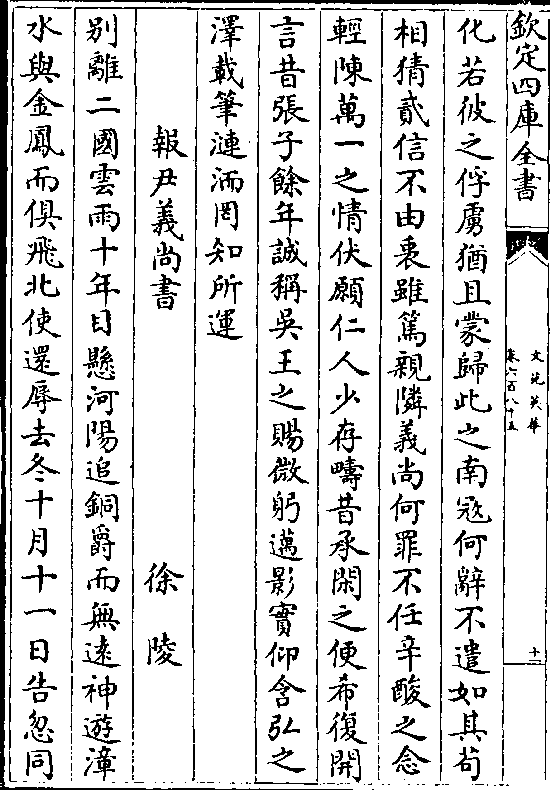 欽定四庫全書
文苑英華
卷六百八十五
十二
化若彼之俘虜猶且蒙歸此之南冦何辭不遣如其茍
相猜貳信不由衷雖篤親隣義尚何罪不任辛酸之念
輕陳萬一之情伏願仁人少存疇昔承閑之便希復開
言昔張子餘年誠稱吳王之賜微躬邁影實仰含弘之
澤載筆漣洏罔知所運
報尹義尚書　徐陵
別離二國雲雨十年目懸河陽追銅爵而無逺神遊漳
水與金鳳而俱飛北使還辱去冬十月十一日告忽同